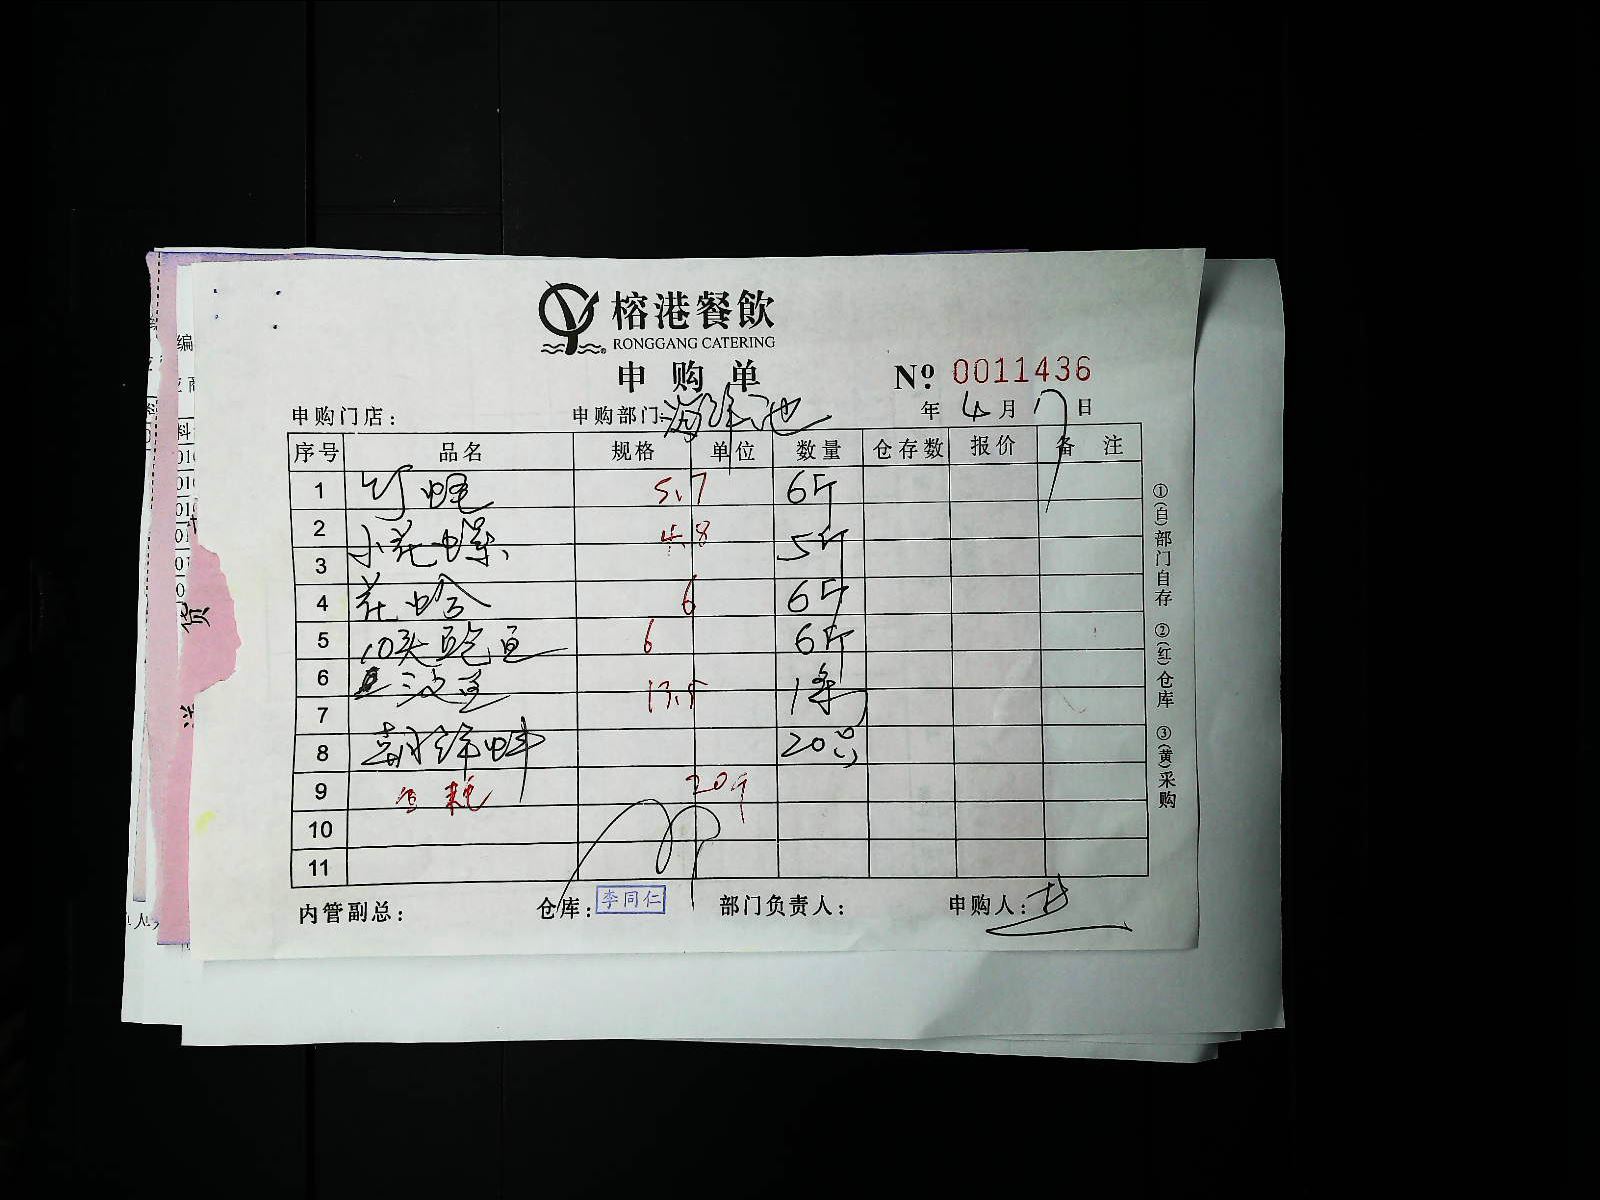 榕港餐飲
RONGGANG CATERING
申购单
No: 0011436
申购门店:
申购部门:海鲜池
年 4月17日
序号 品名 规格 单位 数量 仓存数 报价 备注
1 竹蛏 5.7 6斤
2 小花螺 4.8 5斤
3
4 花蛤 6 6斤
5 10头鲍鱼 6 6斤
6 三文鱼 13.5 1条
7
8 20只
9 20个
10
11
内管副总:
仓库: 李同仁
部门负责人:
申购人:
①(白)部门自存 ②(红)仓库 ③(黄)采购
编
料
货